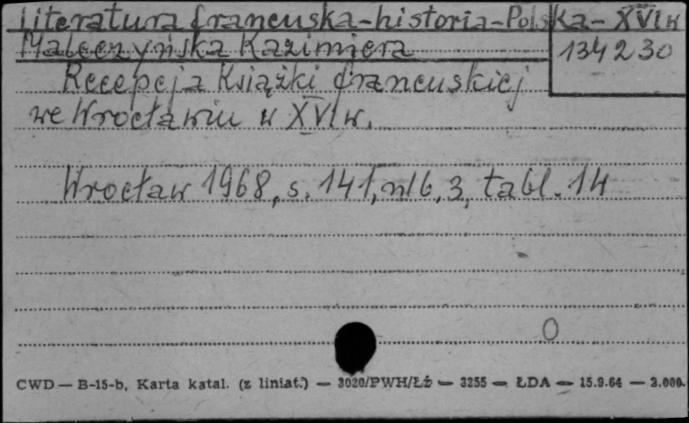 Literatura francuska-historia-Polska-XVI w
Maleczyńska Kazimiera
134230
Recepcja Książki francuskiej
we Wrocławiu w XVI w.
Wrocław 1968, s. 141, nlb. 3, tabl. 14
0
CWD — B-15-b, Karta katal. (z liniat.) — 3020/PWH/Łż — 3255 — ŁDA — 15.9.64 — 3.000.